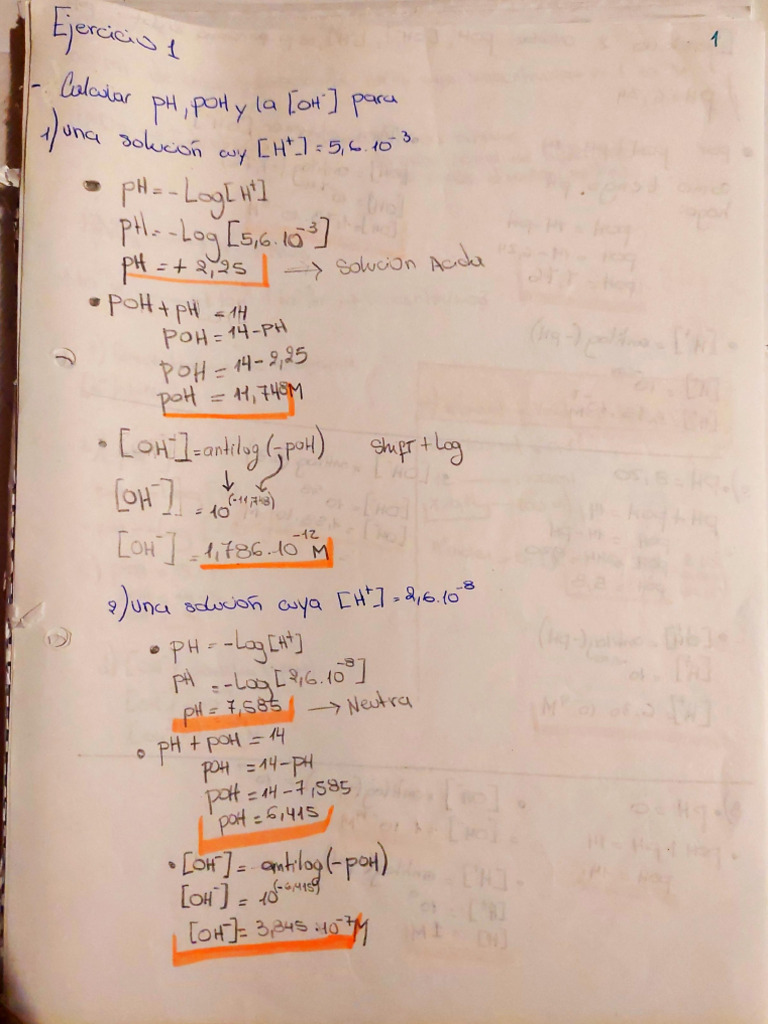 Ejercicio 1
1
- Calcular pH, pOH y la [OH⁻] para
1) una solución cuy [H⁺] = 5,6.10⁻³
• pH = -Log[H⁺]
pH = -Log [5,6.10⁻³]
pH = + 2,25 → Solución Acida
• pOH + pH = 14
pOH = 14 - pH
pOH = 14 - 2,25
pOH = 11,748M
• [OH⁻] = antilog (-pOH) Shift + Log
[OH⁻] = 10^(-11,748)
[OH⁻] = 1,786.10⁻¹² M
2) una solución cuya [H⁺] = 2,6.10⁻⁸
• pH = -Log[H⁺]
pH = -Log [2,6.10⁻⁸]
pH = 7,585 → Neutra
• pH + pOH = 14
pOH = 14 - pH
pOH = 14 - 7,585
pOH = 6,415
• [OH⁻] = antilog (-pOH)
[OH⁻] = 10^(-6,415)
[OH⁻] = 3,845.10⁻⁷ M